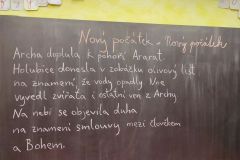 Nový počátek - Nový počátek
Archa doplula k pohoří Ararat.
Holubice donesla v zobáčku olivový list
na znamení, že vody opadly. Noe
vyvedl zvířata i ostatní ven z Archy.
Na nebi se objevila duha
na znamení smlouvy mezi člověkem
a Bohem.